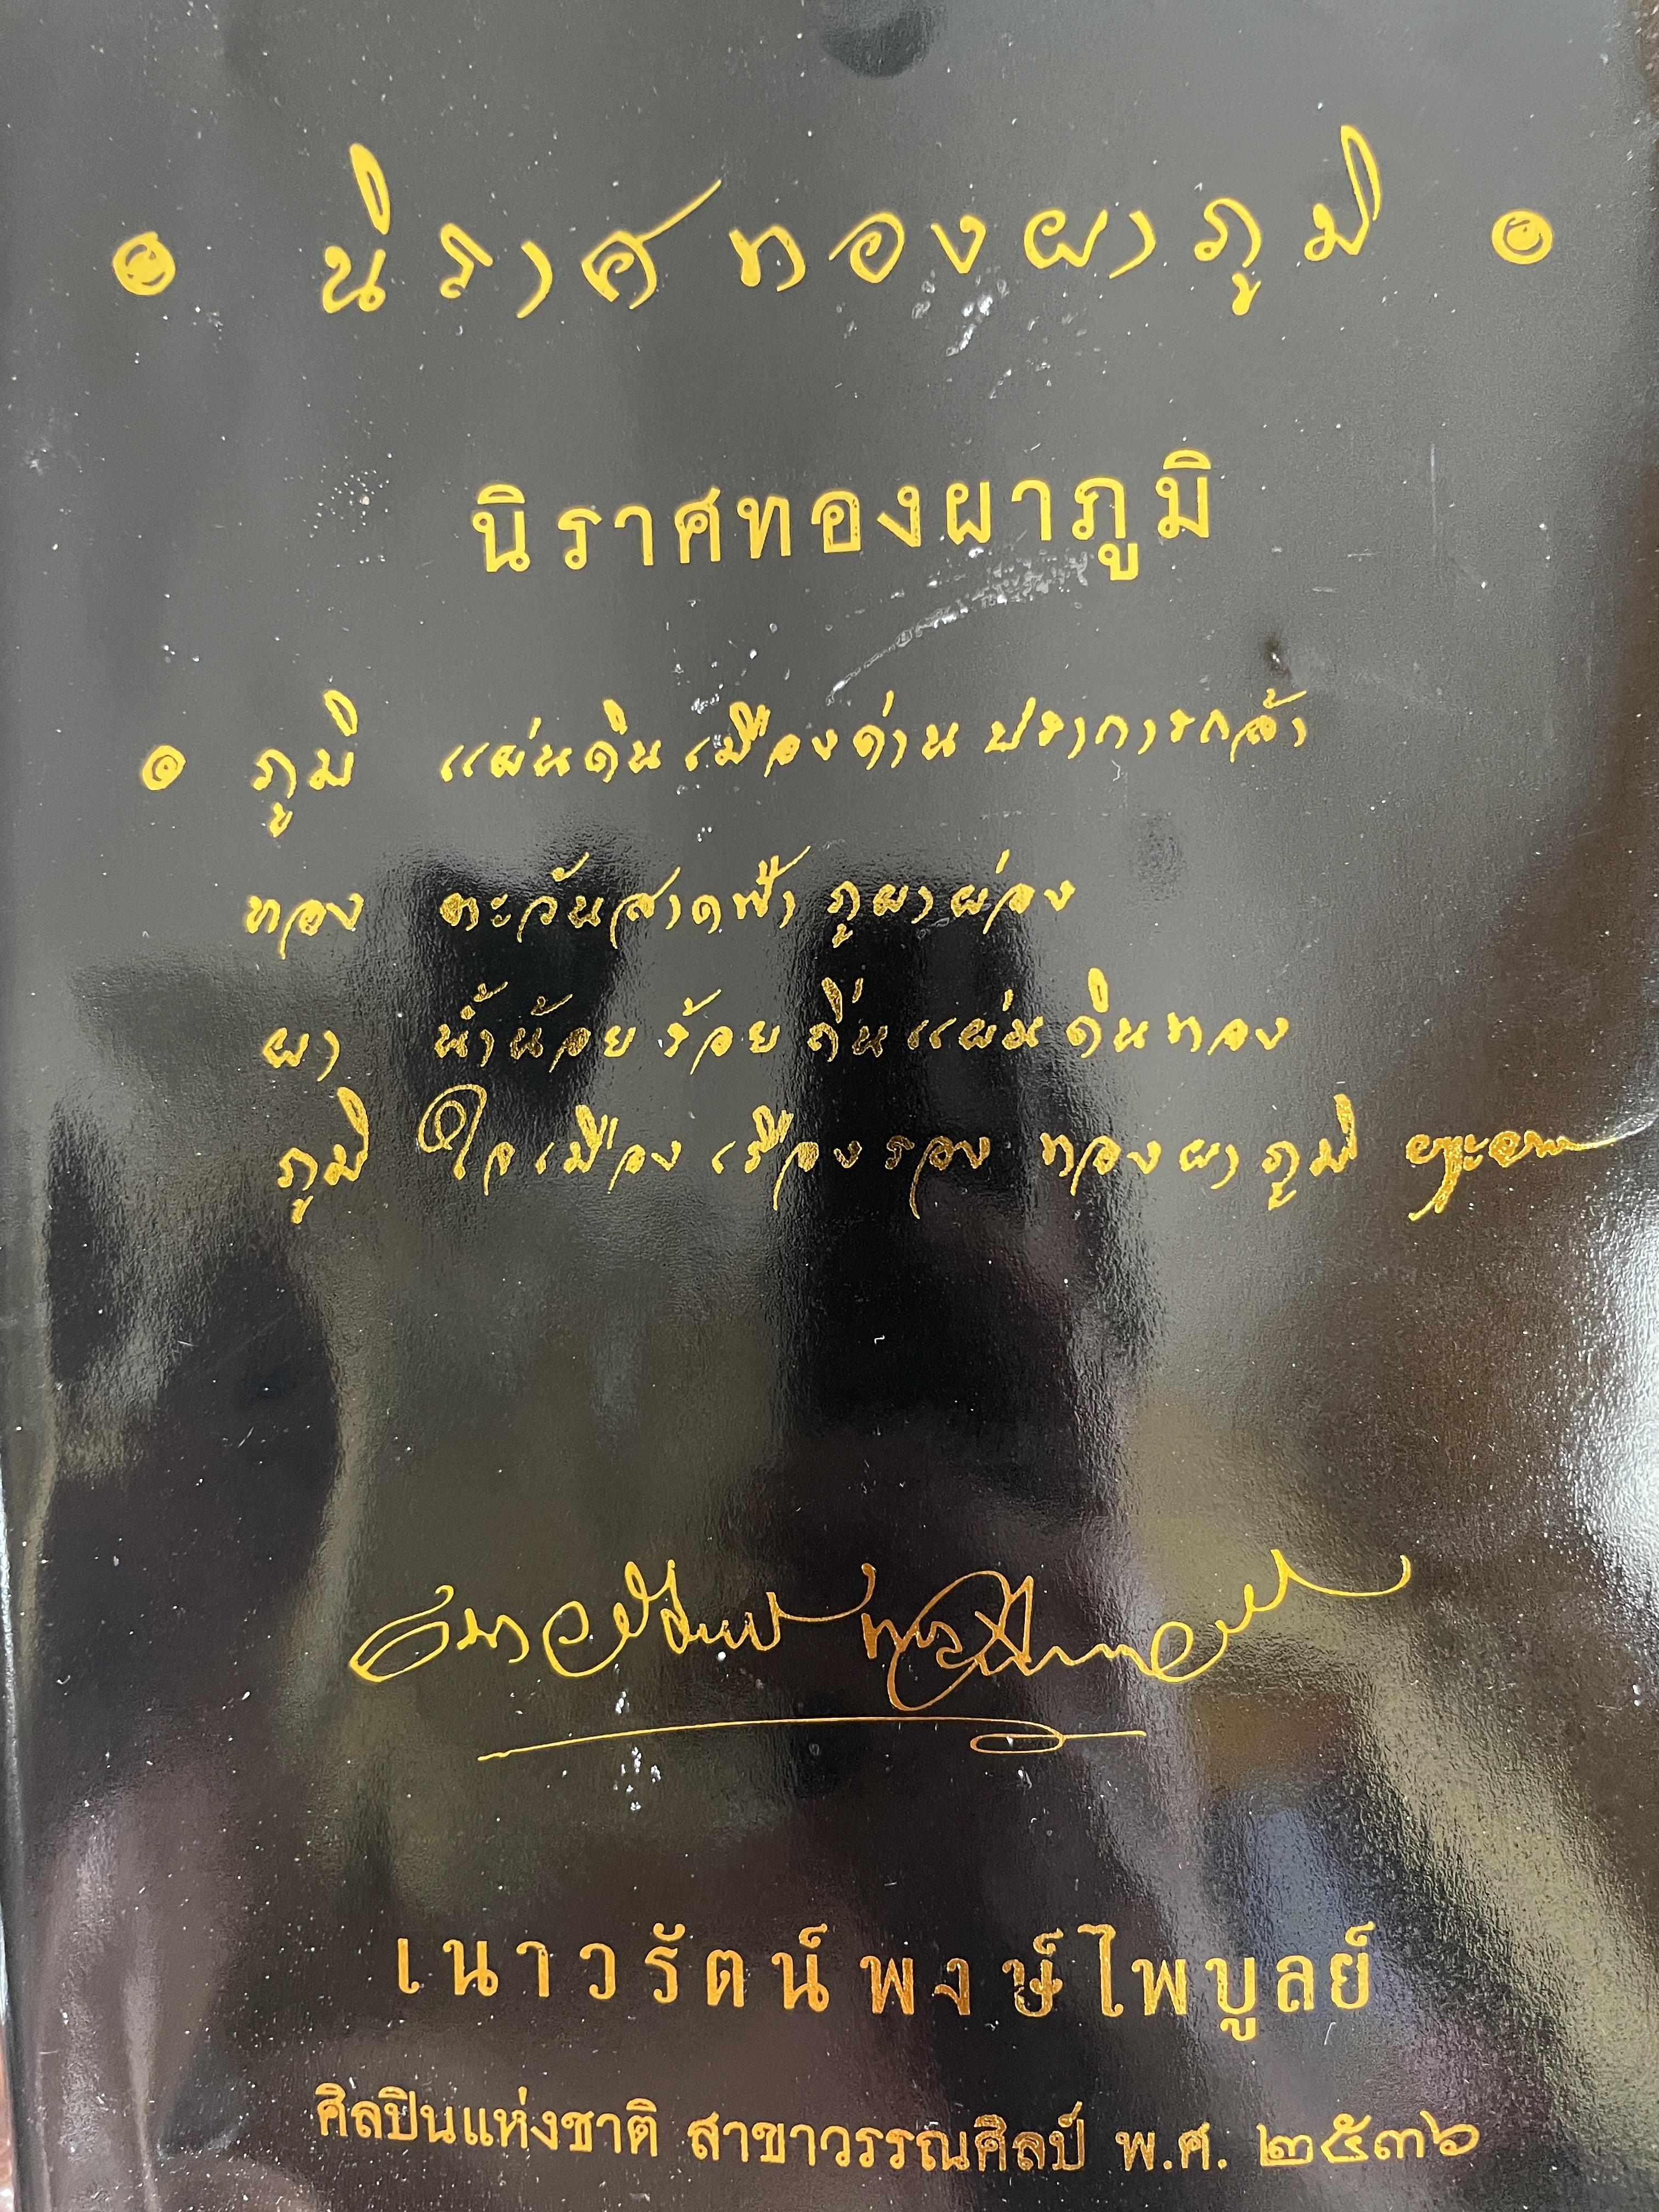 ๏ นิราศทองผาภูมิ ๏
นิราศทองผาภูมิ
๏ ภูมิ แผ่นดินเมืองด่านปราการกล้า
ทอง ตะวันสาดฟ้าภูผาผ่อง
ผา น้ำน้อยร้อยถิ่นแผ่นดินทอง
ภูมิ ใจเมืองเรืองรอง ทองผาภูมิ
เนาวรัตน์ พงษ์ไพบูลย์
เนาวรัตน์ พงษ์ไพบูลย์
ศิลปินแห่งชาติ สาขาวรรณศิลป์ พ.ศ. ๒๕๓๖